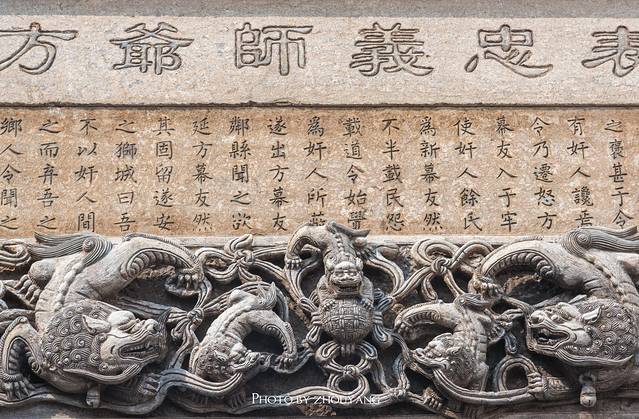 表忠義師爺方
之褒甚于令
有奸人讒焉
令乃遷怒方
幕友入于牢
使奸人餘氏
為新幕友然
不半載民怨
載道令始覺
為奸人所
遂出方幕友
鄰縣聞之欲
延方幕友然
其固留遂安
之獅城曰吾
不以奸人間
之而弃吾之
鄉人令聞之
PHOTO BY ZHOUYANG